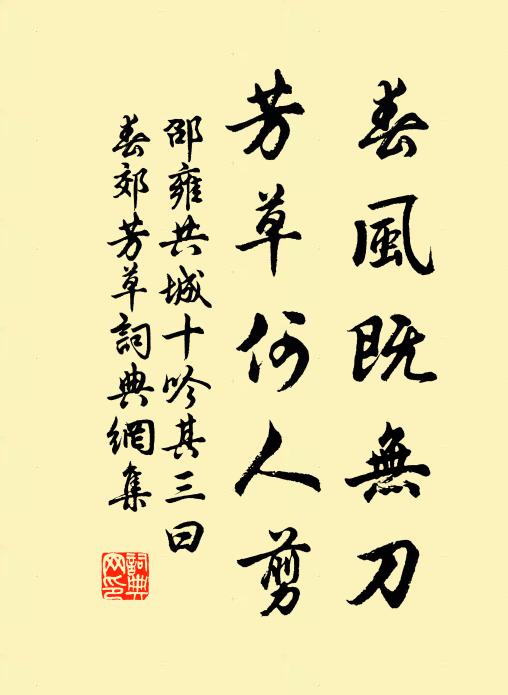 春風既無刀
芳草何人剪
邵雍共城十吟其三曰
春郊芳草詞典網集
詞典网印